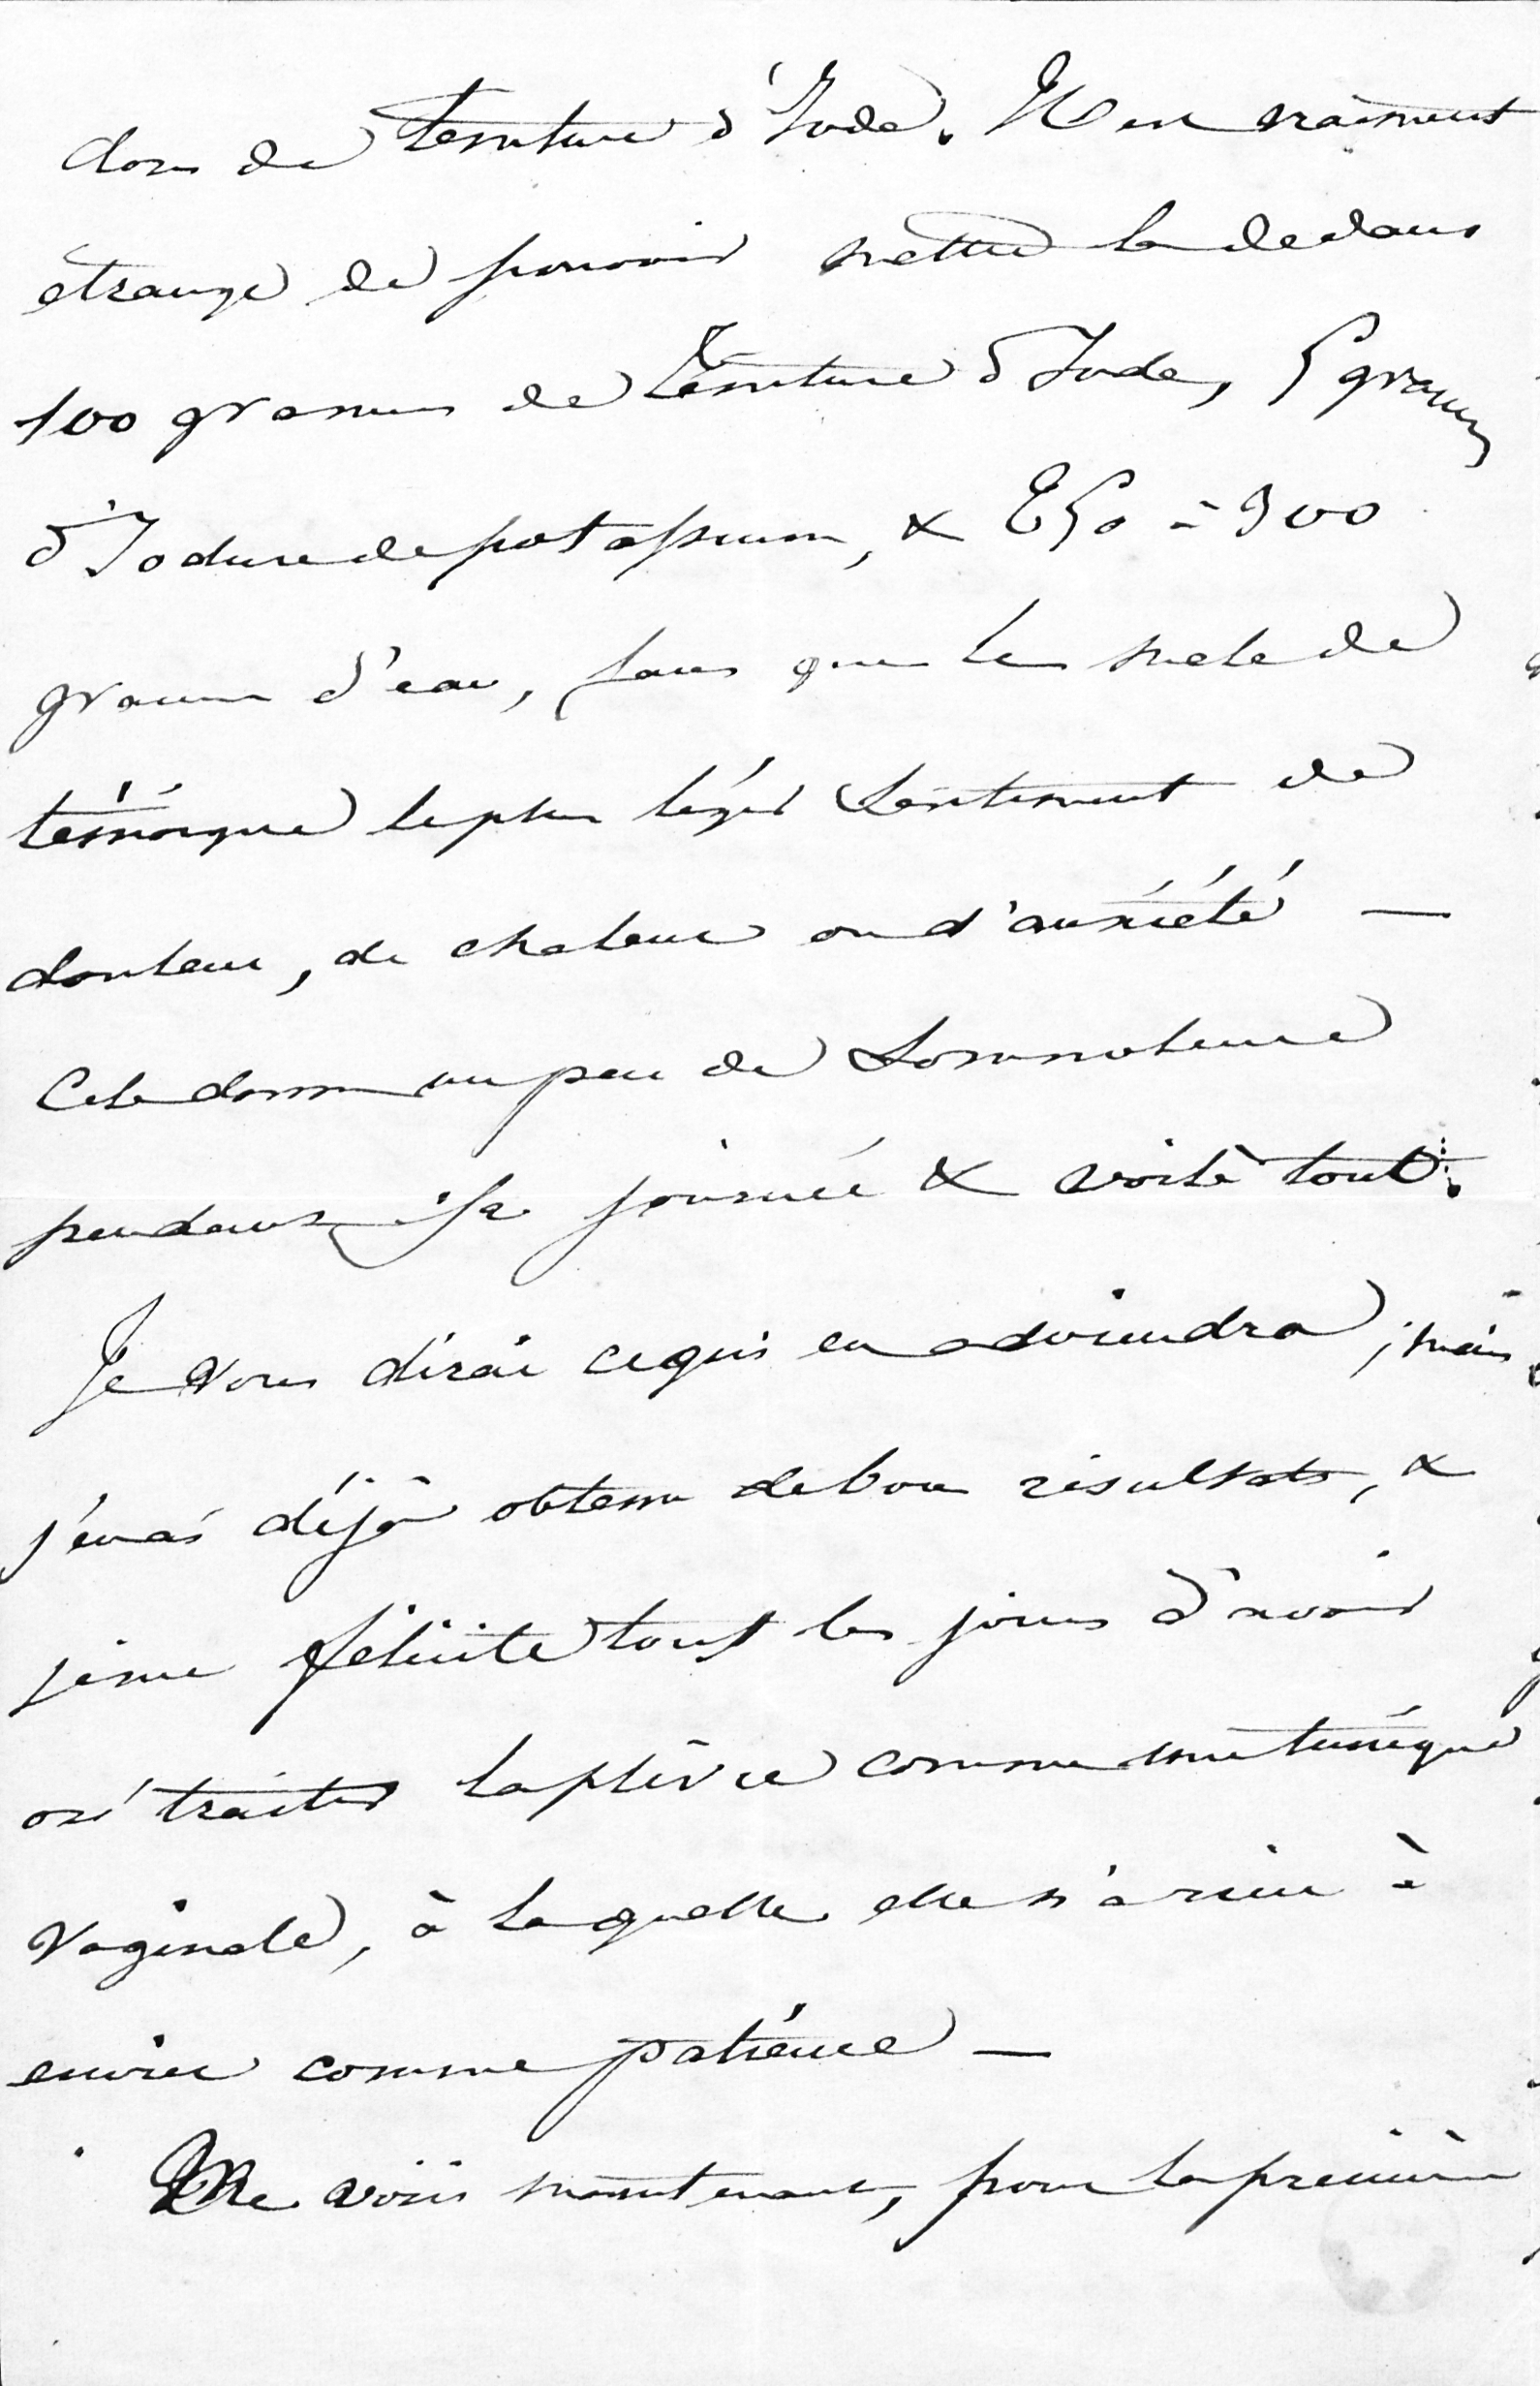 dose de teinture d'Iode. Il est vraiment
étrange de pouvoir mettre la dedans
100 grammes de teinture d'Iode, 5 grammes
d'Iodure de potassium, & 250 à 300
grammes d'eau, sans que le malade
témoigne le plus léger sentiment de
douleur, de chaleur ou d'anxiété —
Cela donne un peu de somnolence
pendant la journée & voilà tout.
Je vous dirai ce qui en adviendra, mais
j'en ai déjà obtenu de bons résultats, &
je me félicite tous les jours d'avoir
osé traiter la plèvre comme une tunique
vaginale, à laquelle elle n'a rien à
envier comme patience —
Me voici maintenant, pour la première